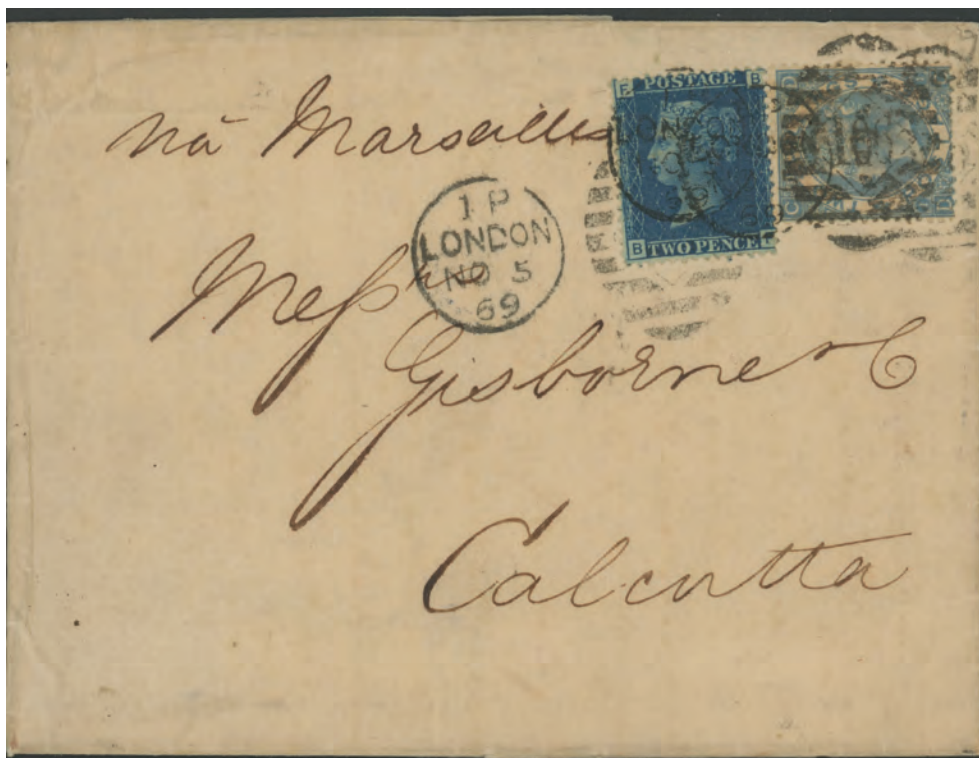 via Marseilles
POSTAGE
TWO PENCE
1 P
LONDON
NO 5
69
Messrs
Gisborne & C
Calcutta